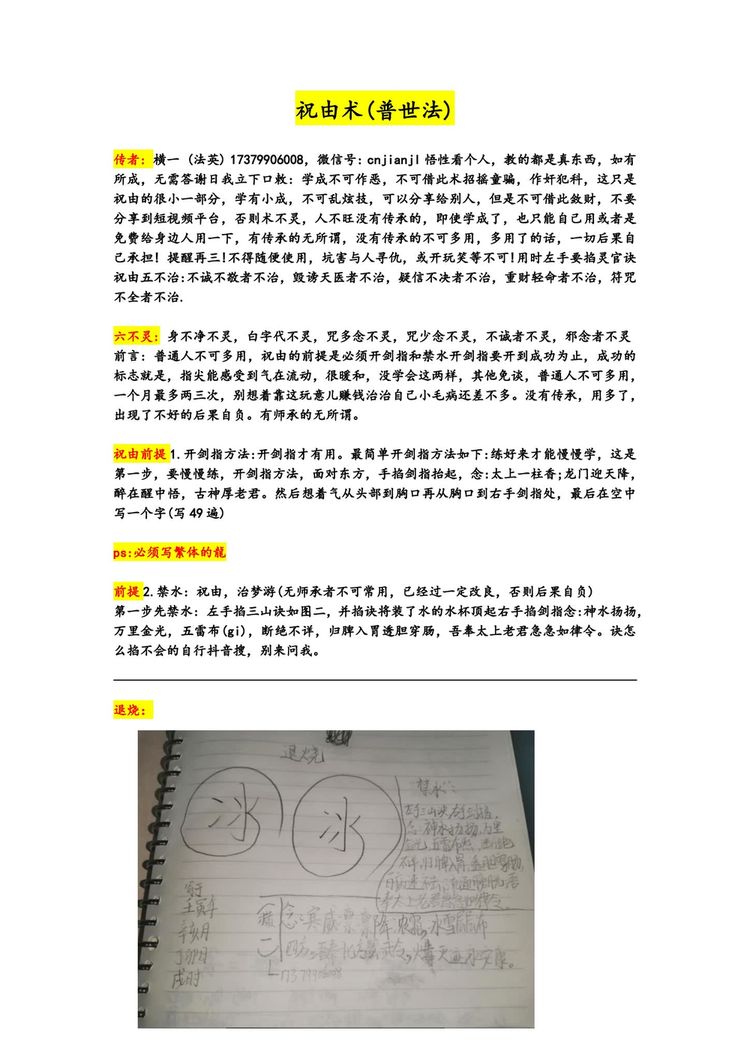 祝由术(普世法)
传者：横一 (法英) 17379906008，微信号：cnjianjl 悟性看个人，教的都是真东西，如有
所成，无需答谢日我立下口敕：学成不可作恶，不可借此术招摇童骗，作奸犯科，这只是
祝由的很小一部分，学有小成，不可乱炫技，可以分享给别人，但是不可借此敛财，不要
分享到短视频平台，否则术不灵，人不旺没有传承的，即使学成了，也只能自己用或者是
免费给身边人用一下，有传承的无所谓，没有传承的不可多用，多用了的话，一切后果自
己承担！提醒再三!不得随便使用，坑害与人寻仇，或开玩笑等不可!用时左手要掐灵官诀
祝由五不治:不诚不敬者不治，毁谤天医者不治，疑信不决者不治，重财轻命者不治，符咒
不全者不治.
六不灵：身不净不灵，白字代不灵，咒多念不灵，咒少念不灵，不诚者不灵，邪念者不灵
前言：普通人不可多用，祝由的前提是必须开剑指和禁水开剑指要开到成功为止，成功的
标志就是，指尖能感受到气在流动，很暖和，没学会这两样，其他免谈，普通人不可多用，
一个月最多两三次，别想着靠这玩意儿赚钱治治自己小毛病还差不多。没有传承，用多了，
出现了不好的后果自负。有师承的无所谓。
祝由前提 1.开剑指方法:开剑指才有用。最简单开剑指方法如下:练好来才能慢慢学，这是
第一步，要慢慢练，开剑指方法，面对东方，手掐剑指抬起，念:太上一柱香;龙门迎天降，
醉在醒中悟，古神厚老君。然后想着气从头部到胸口再从胸口到右手剑指处，最后在空中
写一个字(写 49 遍)
ps:必须写繁体的龍
前提 2.禁水：祝由，治梦游(无师承者不可常用，已经过一定改良，否则后果自负)
第一步先禁水：左手掐三山诀如图二，并掐诀将装了水的水杯顶起右手掐剑指念:神水扬扬，
万里金光，五雷布(gi)，断绝不详，归脾入胃透胆穿肠，吾奉太上老君急急如律令。诀怎
么掐不会的自行抖音搜，别来问我。
退烧：
退烧
冰 冰
禁水：
左手三山诀右手剑指
念：神水扬扬，万里
壬寅年
辛亥月
丁卯日
戌时
17379906008